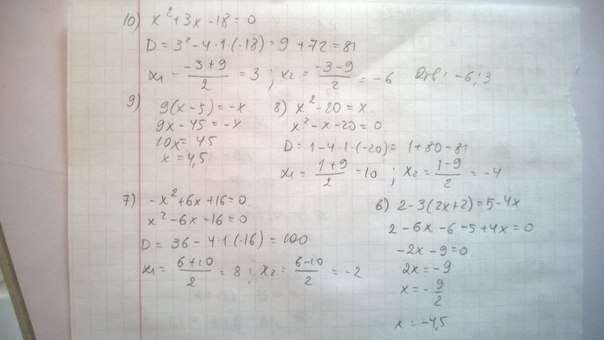 10) x² + 3x - 18 = 0
D = 3² - 4·1·(-18) = 9 + 72 = 81
x₁ = (-3+9)/2 = 3 ; x₂ = (-3-9)/2 = -6 Отв: -6; 3
9) 9(x-5) = -x
9x - 45 = -x
10x = 45
x = 4,5
8) x² - 20 = x
x² - x - 20 = 0
D = 1 - 4·1·(-20) = 1 + 80 = 81
x₁ = (1+9)/2 = 10 ; x₂ = (1-9)/2 = -4
7) -x² + 6x + 16 = 0
x² - 6x - 16 = 0
D = 36 - 4·1·(-16) = 100
x₁ = (6+10)/2 = 8 ; x₂ = (6-10)/2 = -2
6) 2 - 3(2x+2) = 5 - 4x
2 - 6x - 6 - 5 + 4x = 0
-2x - 9 = 0
2x = -9
x = -9/2
x = -4,5